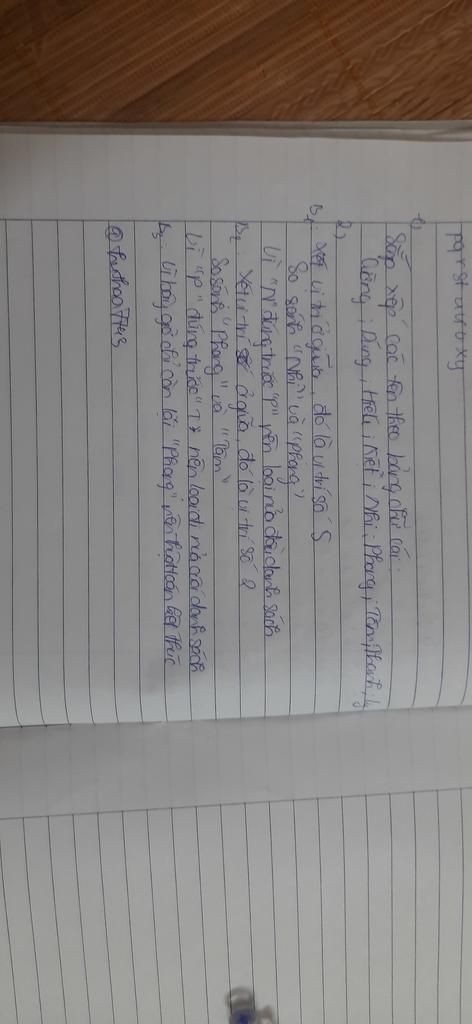 pqrstuvxy
1)
Sắp xếp các tên theo bảng chữ cái:
Cường; Dũng; Hiếu; Kiệt; Nhi; Phong; Tâm; Thanh;
2)
B1: Xét vị trí ở giữa, đó là vị trí số 5
So sánh "Nhi" và "Phong"
Vì "N" đứng trước "P" nên loại nửa đầu danh sách
B2: Xét vị trí số ở giữa, đó là vị trí số 8
So sánh "Phong" và "Tâm"
Vì "P" đứng trước "T" nên loại đi nửa cuối danh sách
B3: Vì bây giờ chỉ còn lại "Phong" nên thuật toán kết thúc